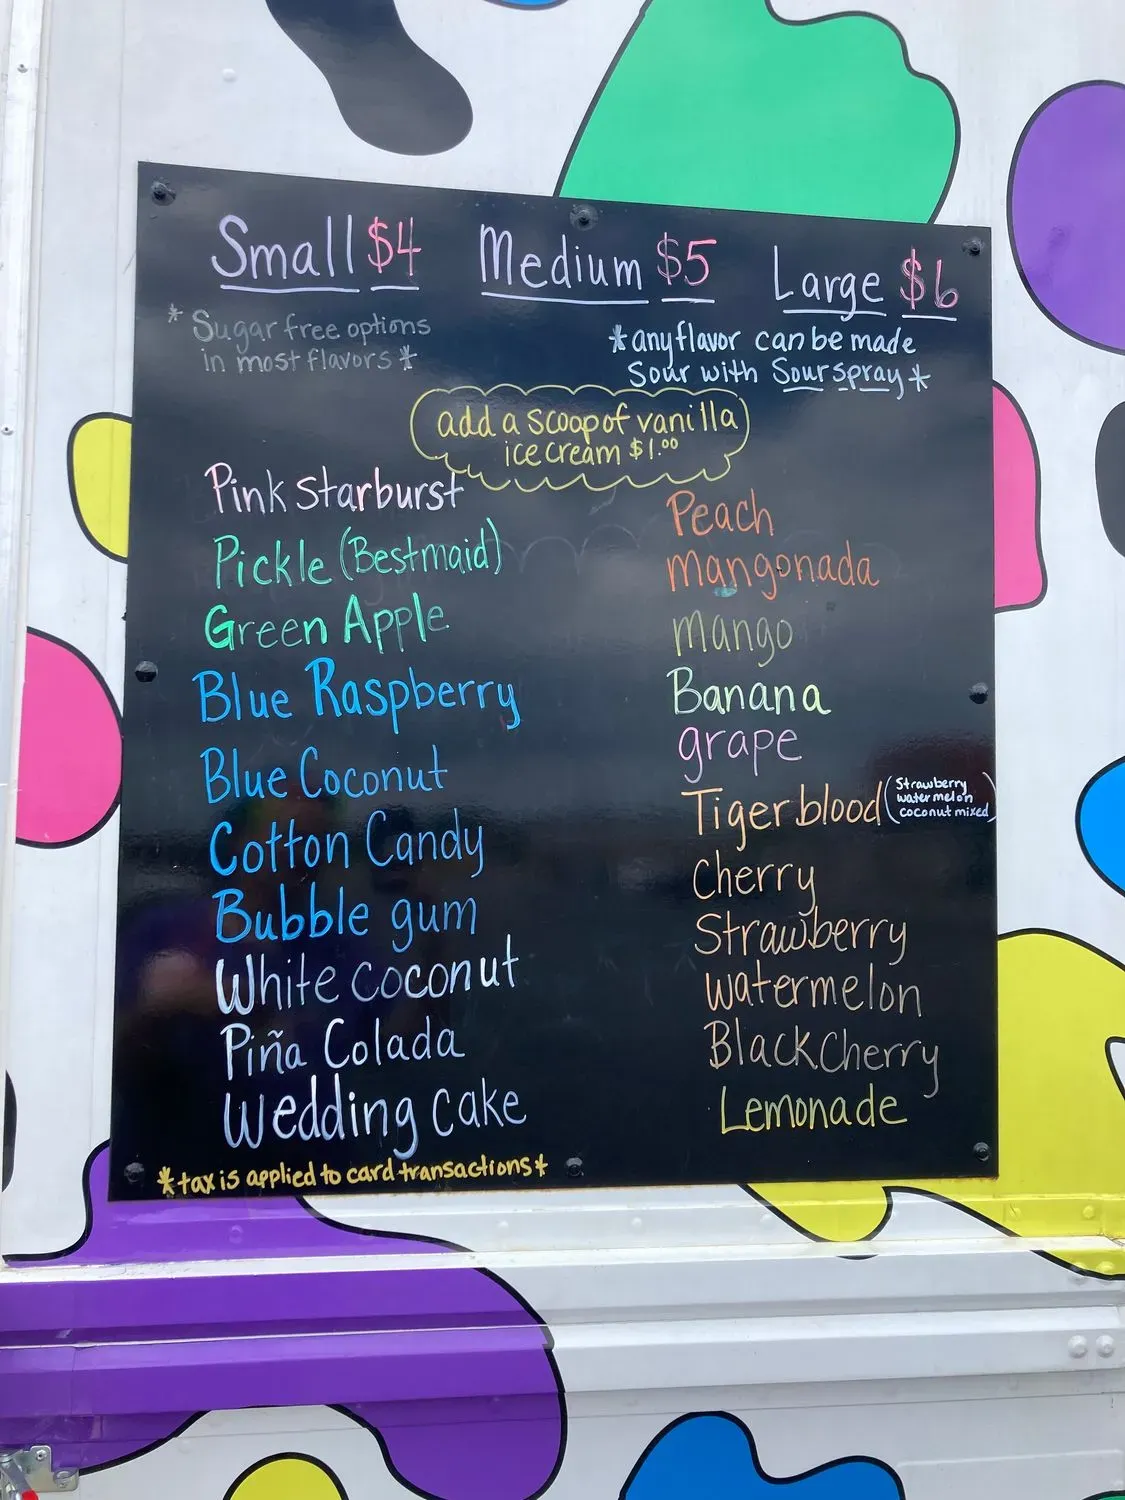 Small $4 Medium $5 Large $6
* Sugar free options
in most flavors *
*any flavor can be made
Sour with Sour spray*
add a scoop of vanilla
ice cream $1.00
Pink Starburst
Pickle (Bestmaid)
Green Apple
Blue Raspberry
Blue Coconut
Cotton Candy
Bubble gum
White coconut
Piña Colada
Wedding cake
Peach
mangonada
mango
Banana
grape
Tiger blood (Strawberry
watermelon
coconut mixed)
Cherry
Strawberry
watermelon
Black Cherry
Lemonade
*tax is applied to card transactions*